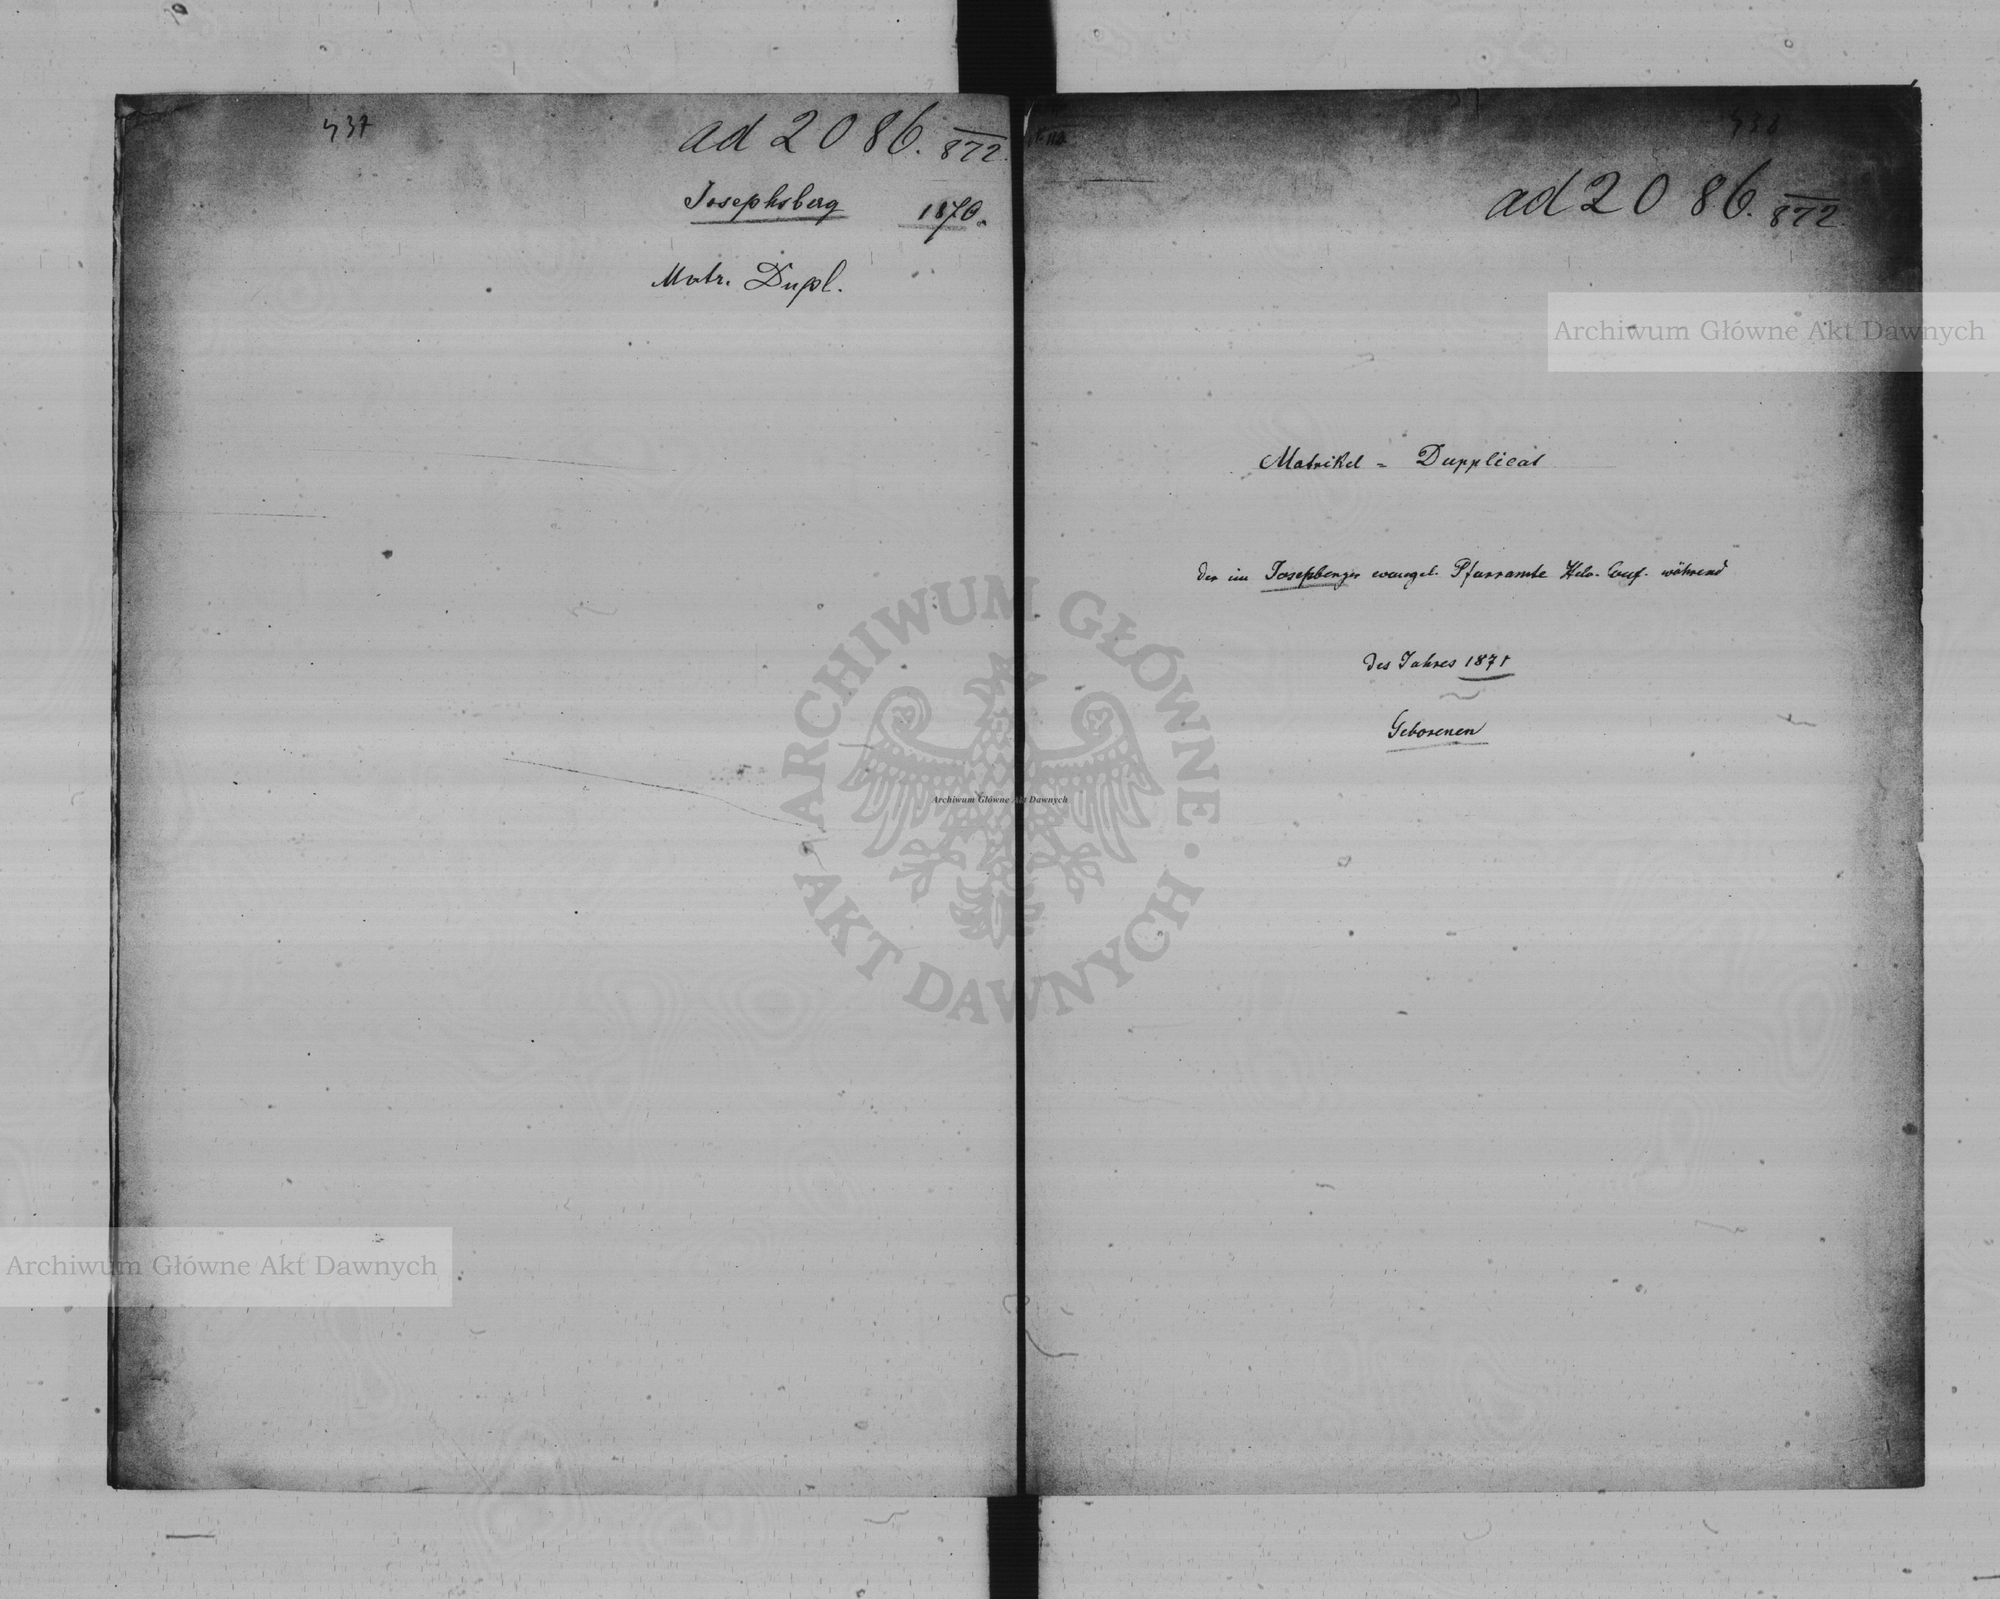 437
ad 2086. 872.
Josephsberg 1870.
Matr. Dupl.
438
ad 2086. 872.
Matrikel = Dupplicat
der im Josepberger evangel. Pfarramte Helv. Conf. während
des Jahres 1871
Geborenen
Archiwum Główne Akt Dawnych
ARCHIWUM GŁÓWNE AKT DAWNYCH
Archiwum Główne Akt Dawnych
Archiwum Główne Akt Dawnych